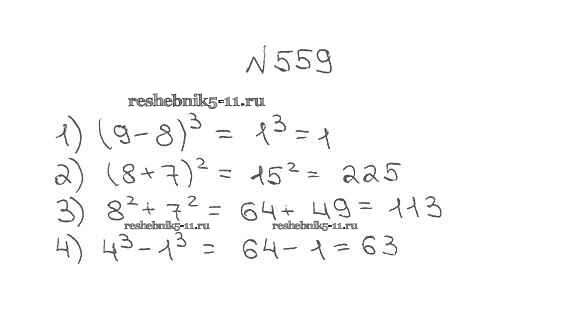 № 559
reshebnik5-11.ru
1) (9-8)³ = 1³ = 1
2) (8+7)² = 15² = 225
3) 8² + 7² = 64 + 49 = 113
reshebnik5-11.ru reshebnik5-11.ru
4) 4³ - 1³ = 64 - 1 = 63